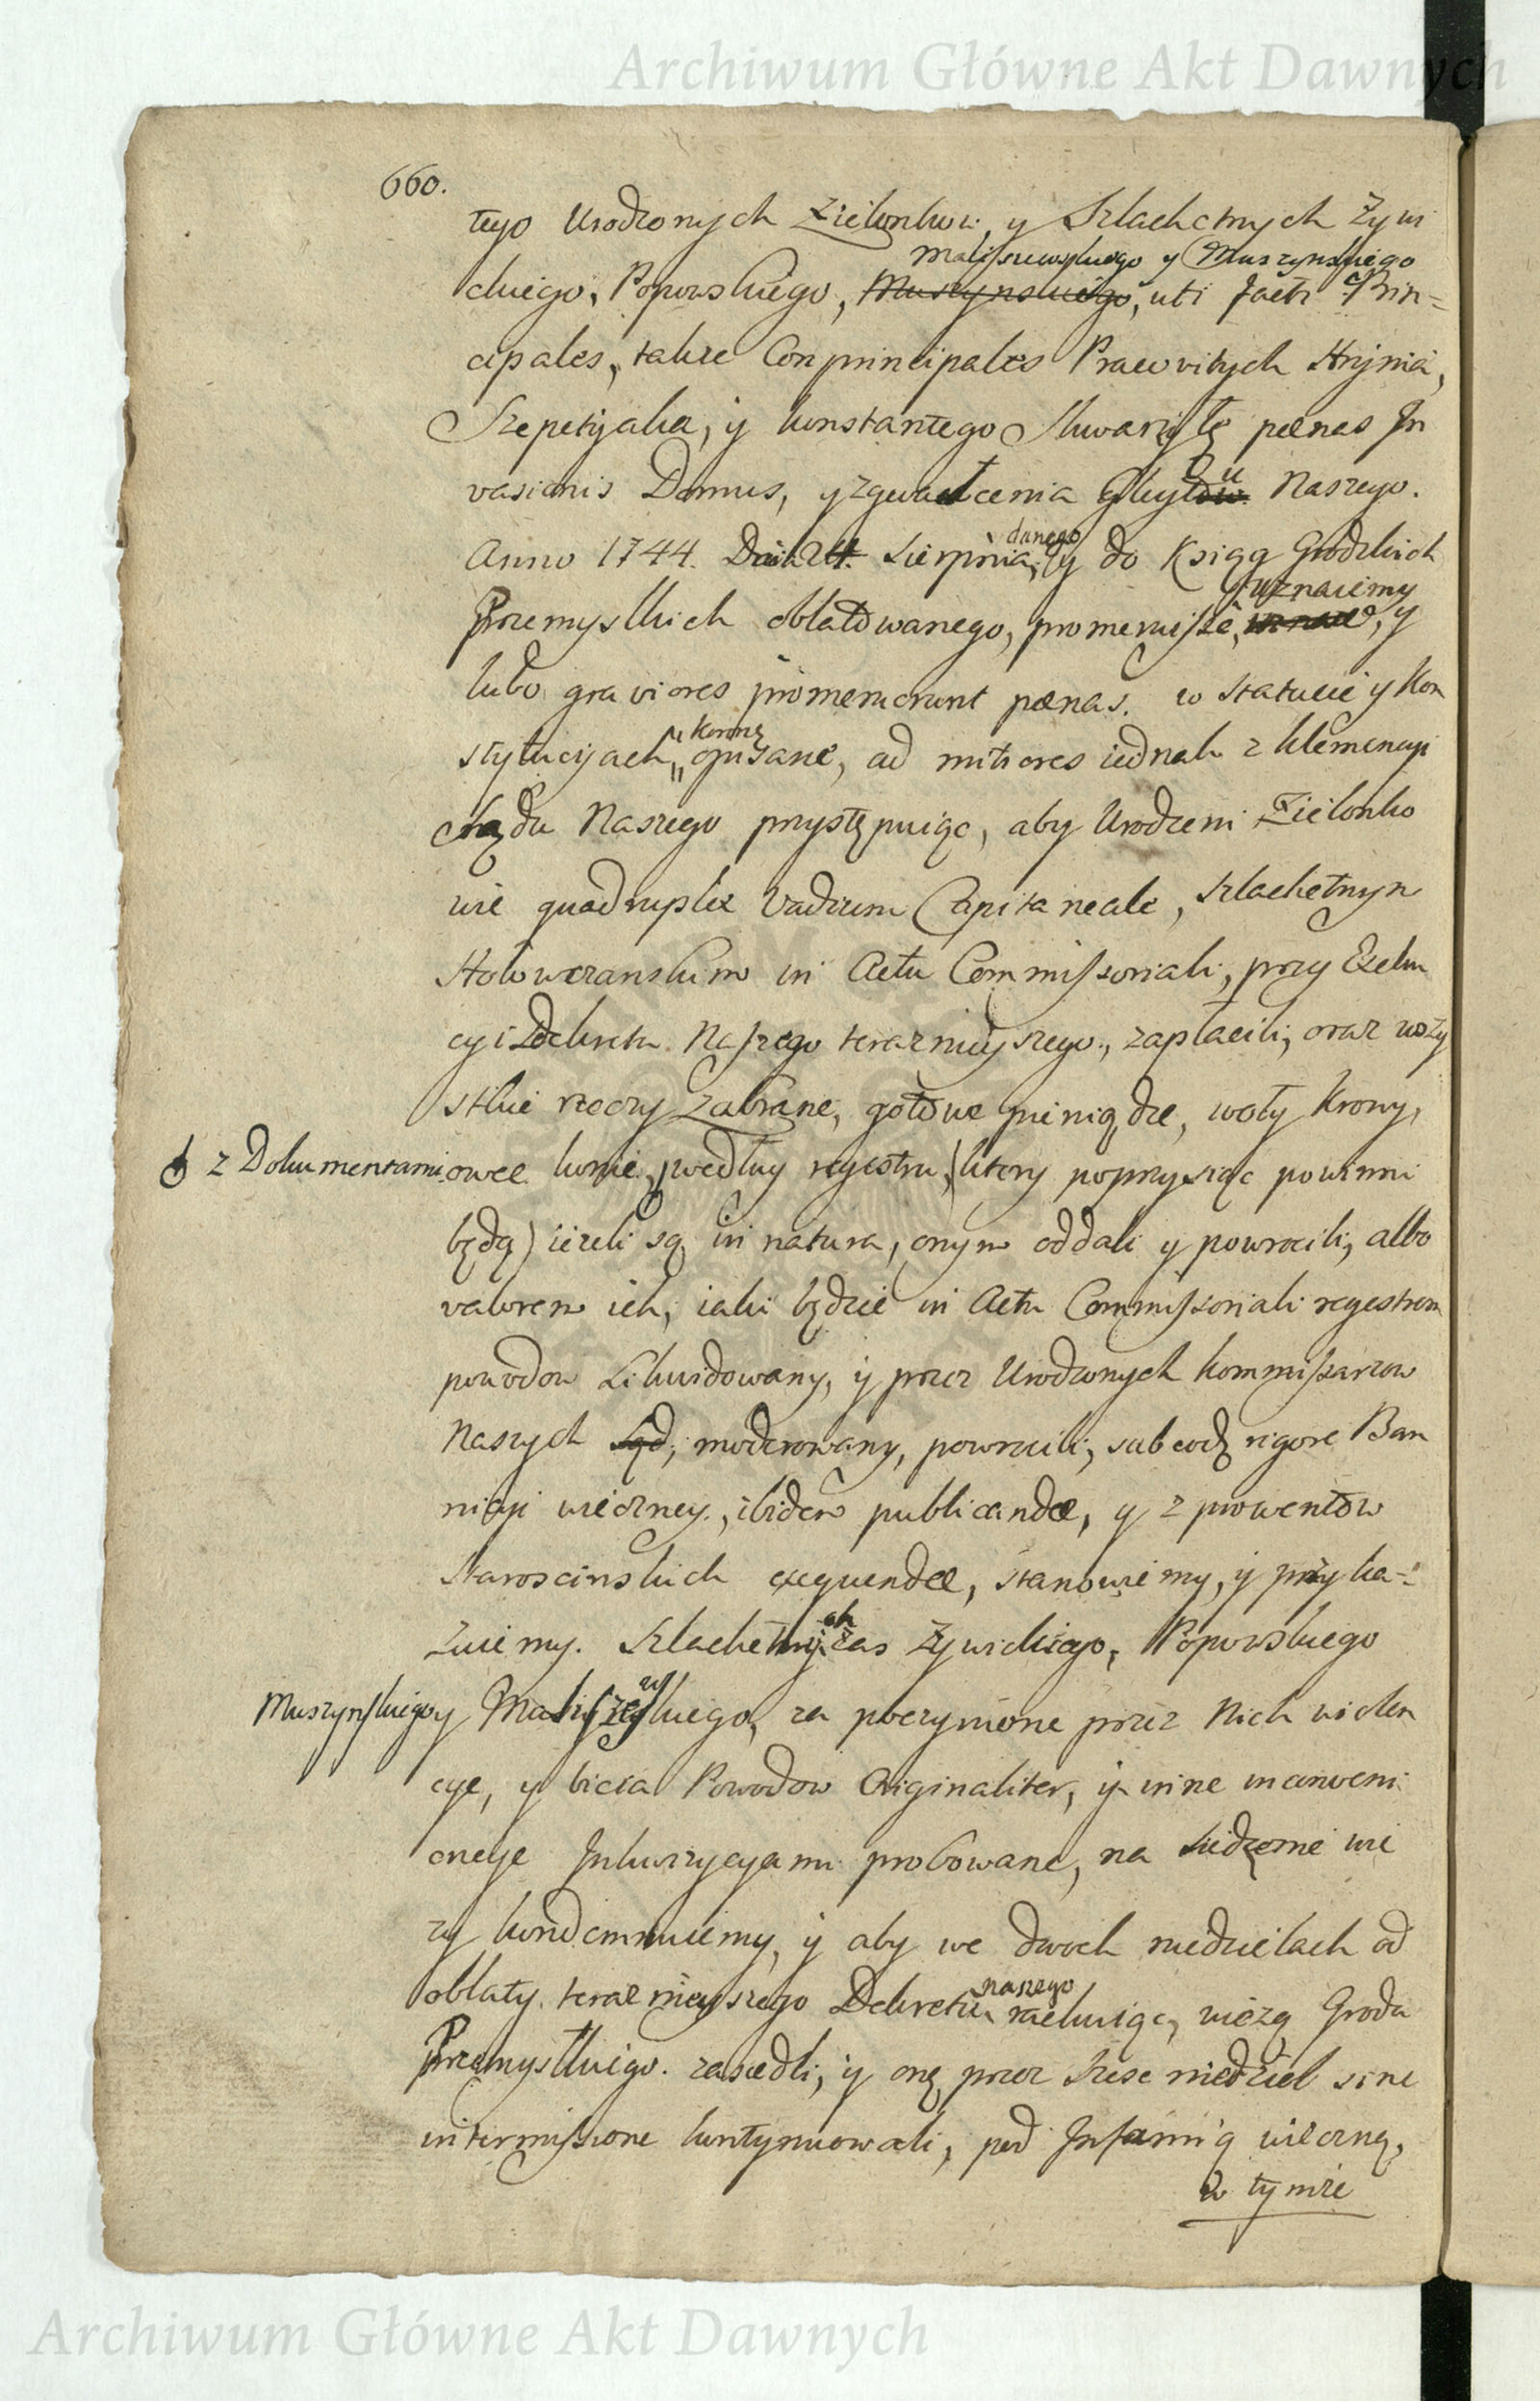 Archiwum Główne Akt Dawnych
660.
tego Urodzonych Zielonkow, y Szlachetnych Zywi
Maliszewskiego y Muszynskiego
ckiego, Popowskiego, Muszynskiego, uti facti Prin=
cipales, takze Conprincipales Pracovitych Hrynia,
Szepetyaka, y Konstantego Skwarę pænas In
vasionis Domus, y zgwałcenia Gleytu Naszego.
danego
Anno 1744. Dnia 24. Sierpnia, y do Ksiąg Grodzkich
uznaiemy
Przemyslkich oblatowanego, promeruisse, y
lubo graviores promeruerunt pænas. w Statucie y Kon
Koronę
stytucyach opisane, ad mitiores iednak z klemencyi
Sądu Naszego przystępuiąc, aby Urodzeni Zielonko
wie quadruplex Vadium Capitaneale, Szlachetnym
Hołowczanskim in Actu Commissoriali, przy Exeku
cyi Dekretu Naszego teraznieyszego, zapłacili, oraz wszy
stkie rzeczy zabrane, gotowe pieniądze, woły krowy,
z Dokumentami owce konie, według regestru, (ktory poprzysiąc powinni
będą) ieżeli są in natura, onym oddali y powrocili, albo
valorem ich, iaki będzie in Actu Commissoriali regestrem
powodow Likwidowany, y przez Urodzonych Kommissarzow
Naszych Sąd, moderowany, powrocili, sub eadem rigore Ban
nicyi wieczney, ibidem publicandæ, y z prowentow
Staroscinskich exequendæ, stanowiemy, y przyka=
zuiemy. Szlachetnych zas Zywickiego, Popowskiego
Muszynskiego y Maliszewskiego, za poczynione przez Nich violen
cye, y bicia Powodow Originaliter, y inne inconveni
encye Inkwizycyami probowane, na siedzenie wie
zy kondemnuiemy, y aby we dwoch niedzielach od
naszego
oblaty teraznieyszego Dekretu rachuiąc, wiezą Grodu
Przemyslkiego zasiedli, y onę przez szesc niedziel sine
intermissione kontynuowali, pod Infamią wieczną,
w tymże
Archiwum Główne Akt Dawnych